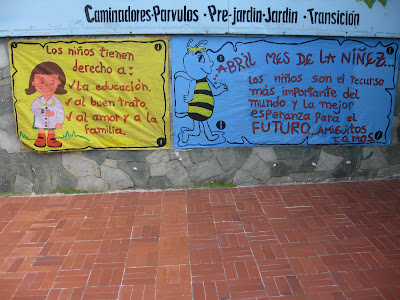 Caminadores·Parvulos ·Pre-jardin-Jardín ·Transición
Los niños tienen
derecho a:
✓ La educación,
✓ al buen trato,
✓ al amor y a la
familia.
ABRIL MES DE LA NIÑEZ...
Los niños son el recurso
más importante del
mundo y la mejor
esperanza para el
FUTURO.